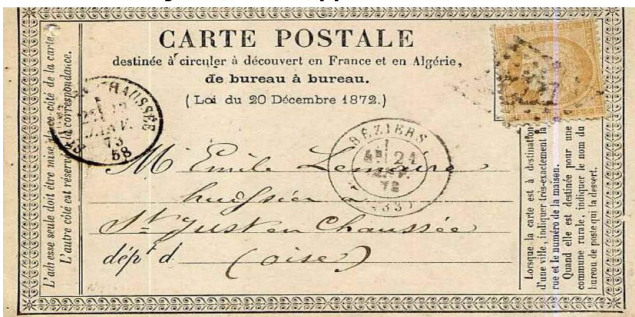 CARTE POSTALE
destinée à circuler à découvert en France et en Algérie,
de bureau à bureau.
(Loi du 20 Décembre 1872.)
L'adresse seule doit être mise sur ce côté de la carte.
L'autre côté est réservé à la correspondance.
CHAUSSÉE
73
58
BÉZIERS
21
(33)
M Emile Lemaire
huissier à
St Just en Chaussée
dépt d (oise)
Lorsque la carte est à destination
d'une ville, indiquer très-exactement la
rue et le numéro de la maison.
Quand elle est destinée pour une
commune rurale, indiquer le nom du
bureau de poste qui la dessert.